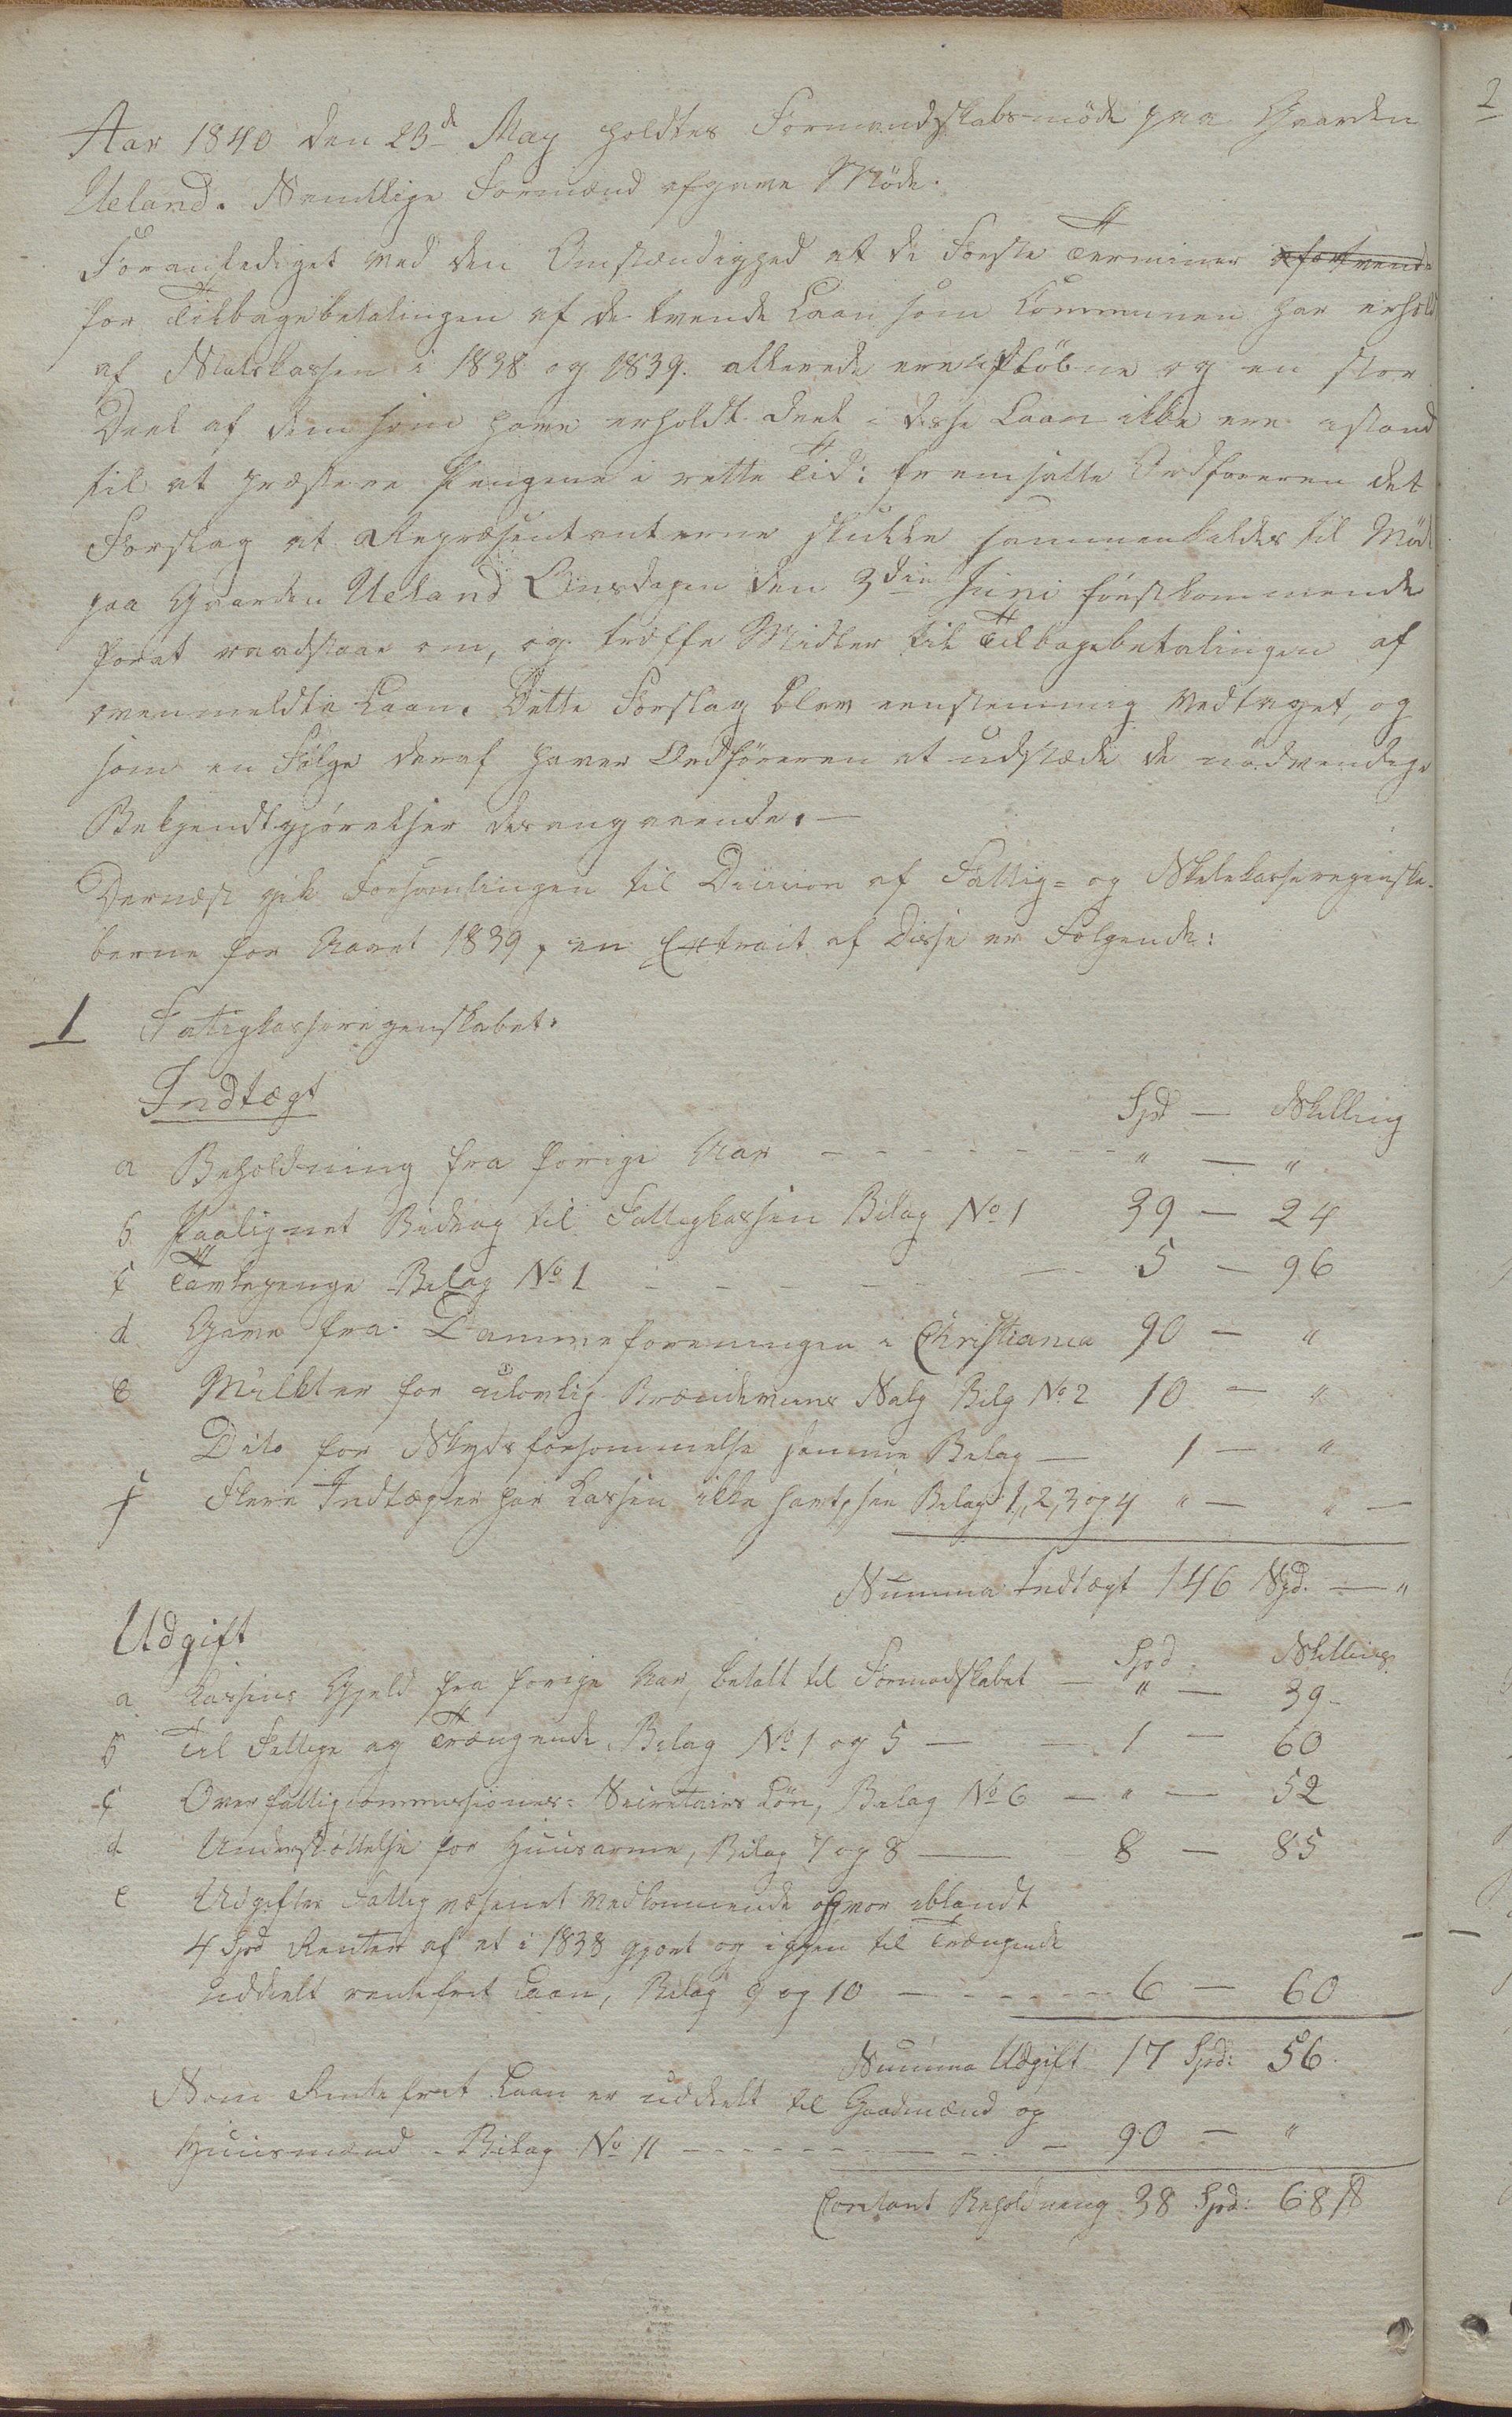 Aar 1840 den 23d May holdtes Formandskabsmöde paa Gaarden
Ueland. Samtlige Formænd afgave Möde.
Foranlediget ved den Omstændighed at de Første Terminer
for Tilbagebetalingen af de tvende Laan som Communen har erhold
af Statskassen i 1838 og 1839. allerede ere udløbne og en stor
Deel af dem som have erholdt Deel i disse Laan ikke ere istand
til at præstere Pengene i rette Tid: fremsatte Ordföreren det
Forslag at Repræsentanterne skulde sammenkaldes til Möde
paa Gaarden Ueland Onsdagen den 3die Juni förstkommende
forat raadslaae om, og træffe Midler til Tilbagebetalingen af
ovenmeldte Laan. Dette Forslag blev eenstemmig vedtaget, og
som en Fölge deraf haver Ordföreren at udstæde de nödvendige
Bekjendtgjörelser desangaaende. —
Dernæst gik Forsamlingen til Decision af Fattig= og Skolekasseregnska-
berne for Aaret 1839, en Extrait af disse er Følgende:
1 Fatigkasseregnskabet.
Indtægt
Spd — Skilling
a Beholdning fra forige Aar - - - - - - - " — "
b Paalignet Bidrag til Fattigkassen Bilag No 1 39 — 24
c Tavlepenge Bilag No 1 - - - - - 5 — 96
d Gave fra Dameforeningen i Christiania 90 — "
e Mulkter for ulovlig Brændeviins Salg Bilg No 2 10 — "
Dito for Skydsforsømmelse samme Belag — 1 — "
f Flere Indtægter har Kassen ikke havt, see Bilag 1, 2, 3 og 4 " — " —
Summa Indtægt 146 Spd. — "
Udgift
Spd Skilling
a Kassens Gjeld fra forige Aar, betalt til Formandskabet — " — 39 -
b Til Fattige og Trængende. Bilag No 1 og 5 — — 1 — 60
c Overfattigcommissions= Secretairs Lön, Bilag No 6 — " — 52
d Understöttelse for Huusarme, Bilag 7 og 8 — 8 — 85
e Udgifter Fattigvæsenet vedkommende hvor iblandt
4 Spd Renter af et i 1838 gjort og igjen til Trængende
Uddeelt rentefrit Laan, Bilag 9 og 10 — - - - - - 6 — 60
Summa Udgift 17 Spd: 56.
Som Rentefrit Laan er uddeelt til Gaadmænd og
Huusmænd - Bilag No 11 - - - - - - - - 90 — "
Contant Beholdning 38 Spd: 68 ß
2